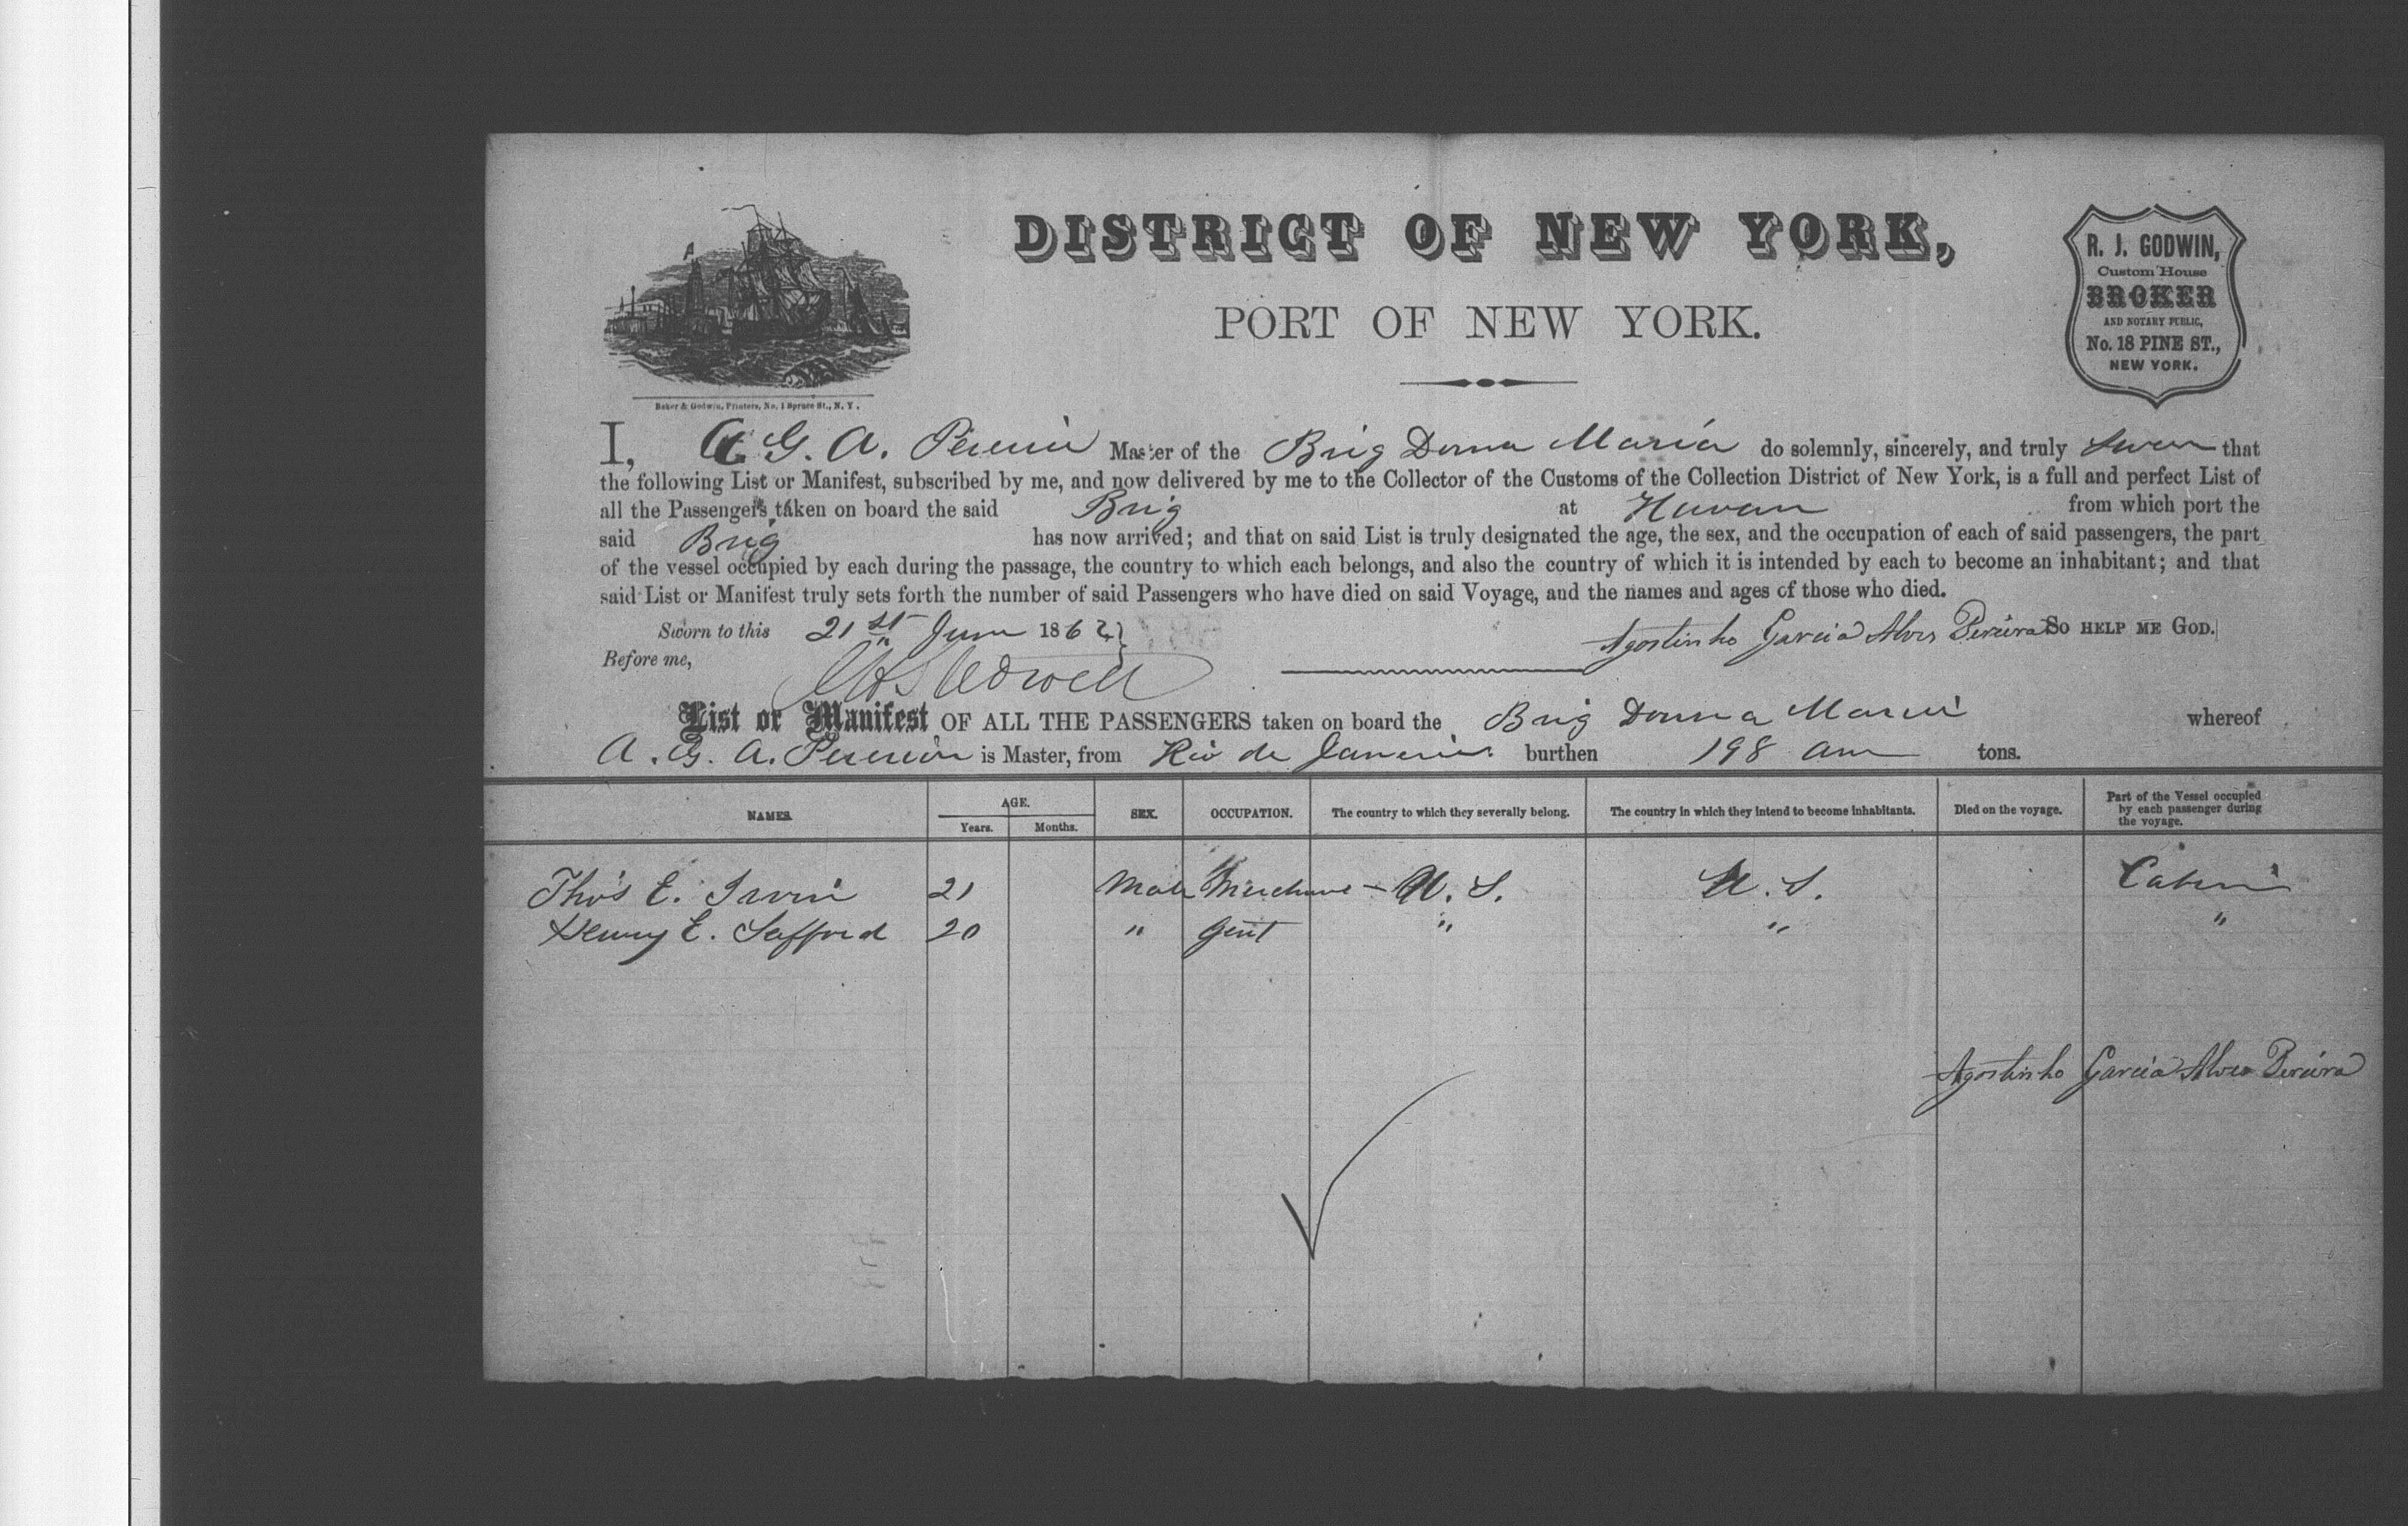 DISTRICT OF NEW YORK,
PORT OF NEW YORK.
R. J. GODWIN,
Custom House
BROKER
AND NOTARY PUBLIC,
No. 18 PINE ST.,
NEW YORK.
Baker & Godwin, Printers, No. 1 Spruce St., N. Y.
I, A G. A. Pereira Master of the Brig Donna Maria do solemnly, sincerely, and truly Swear that
the following List or Manifest, subscribed by me, and now delivered by me to the Collector of the Customs of the Collection District of New York, is a full and perfect List of
all the Passengers taken on board the said Brig at from which port the
said Brig has now arrived; and that on said List is truly designated the age, the sex, and the occupation of each of said passengers, the part
of the vessel occupied by each during the passage, the country to which each belongs, and also the country of which it is intended by each to become an inhabitant; and that
said List or Manifest truly sets forth the number of said Passengers who have died on said Voyage, and the names and ages of those who died.
Sworn to this 21st June 1862 Agostinho Garcia Alves Pereira SO HELP ME GOD.
Before me,
List or Manifest OF ALL THE PASSENGERS taken on board the Brig Donna Maria whereof
A. G. A. Pereira is Master, from Rio de Janeiro burthen 198 tons.
NAMES. AGE. Years. Months. SEX. OCCUPATION. The country to which they severally belong. The country in which they intend to become inhabitants. Died on the voyage. Part of the Vessel occupied by each passenger during the voyage.
Thos E. Irvin 21 Male Merchant - U. S. U. S. Cabin
Henry E. Safford 20 " Gent " " "
Agostinho Garcia Alves Pereira